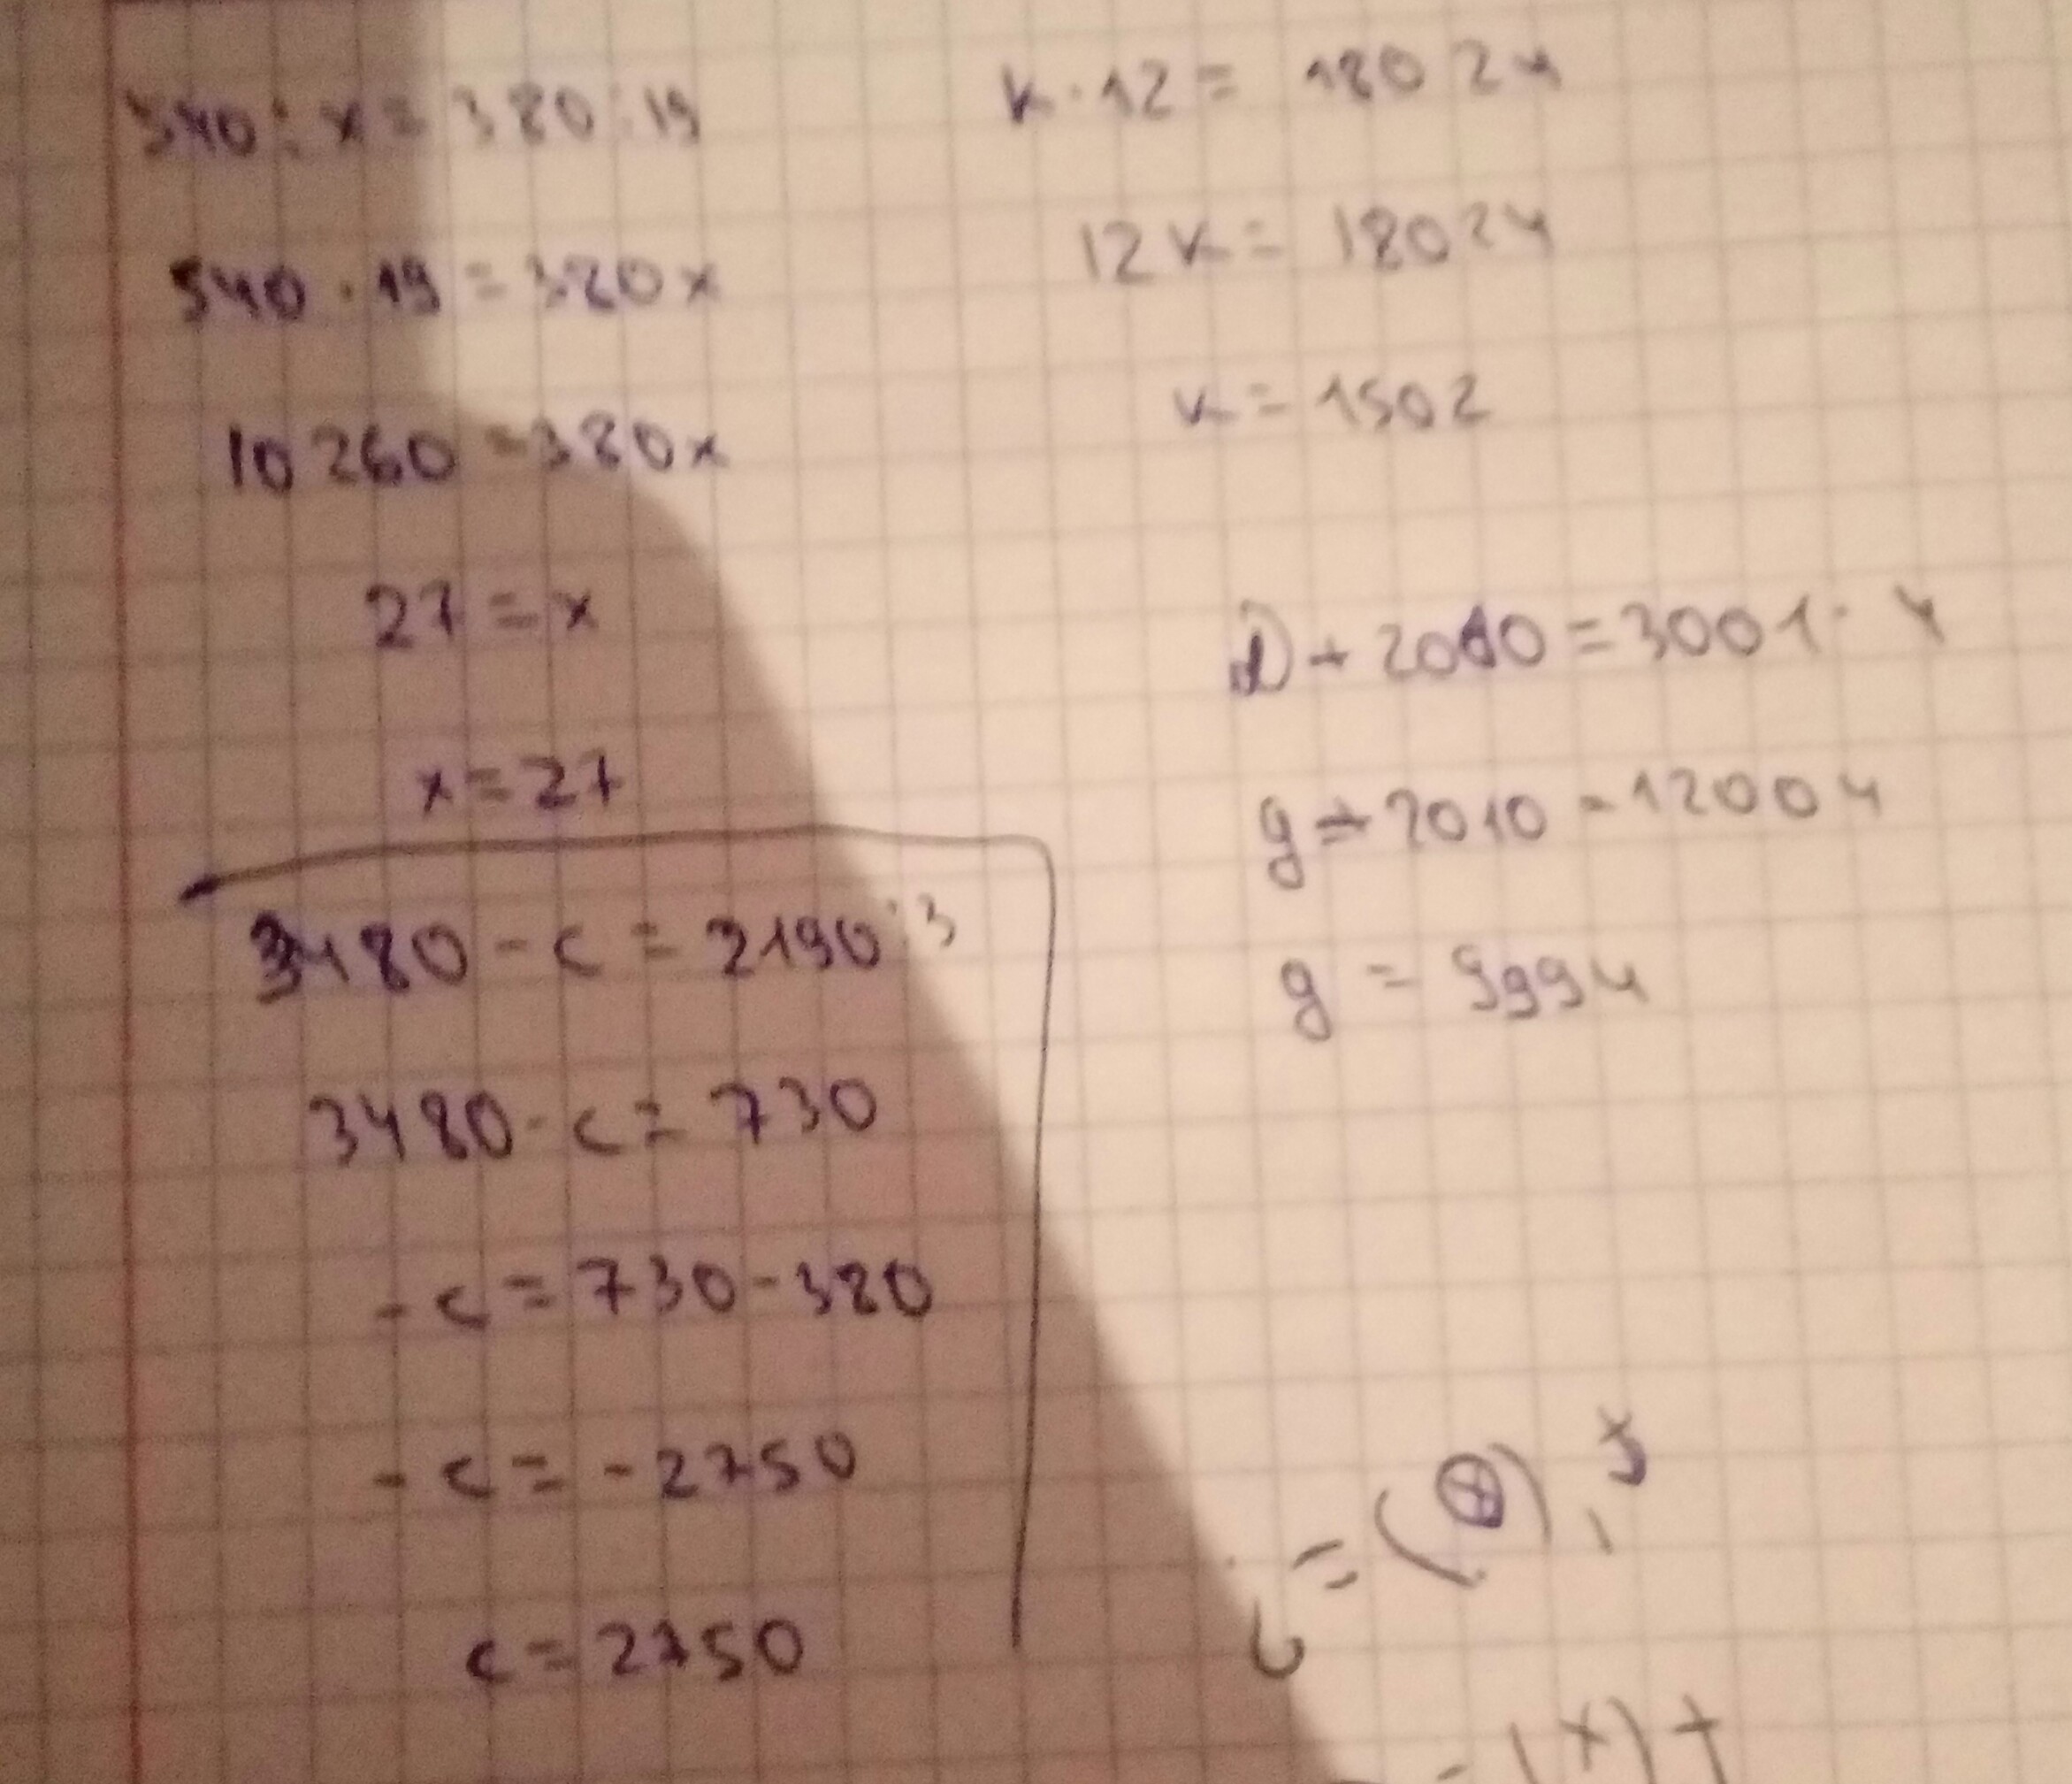 540 : x = 380 : 19
540 · 19 = 380x
10 260 = 380x
27 = x
x = 27
3480 - c = 2190 : 3
3480 - c = 730
- c = 730 - 380
- c = - 2750
c = 2750
k · 12 = 180 24
12 k = 180 24
k = 1502
+ 2010 = 3001 · 4
g + 2010 = 12004
g = 9994